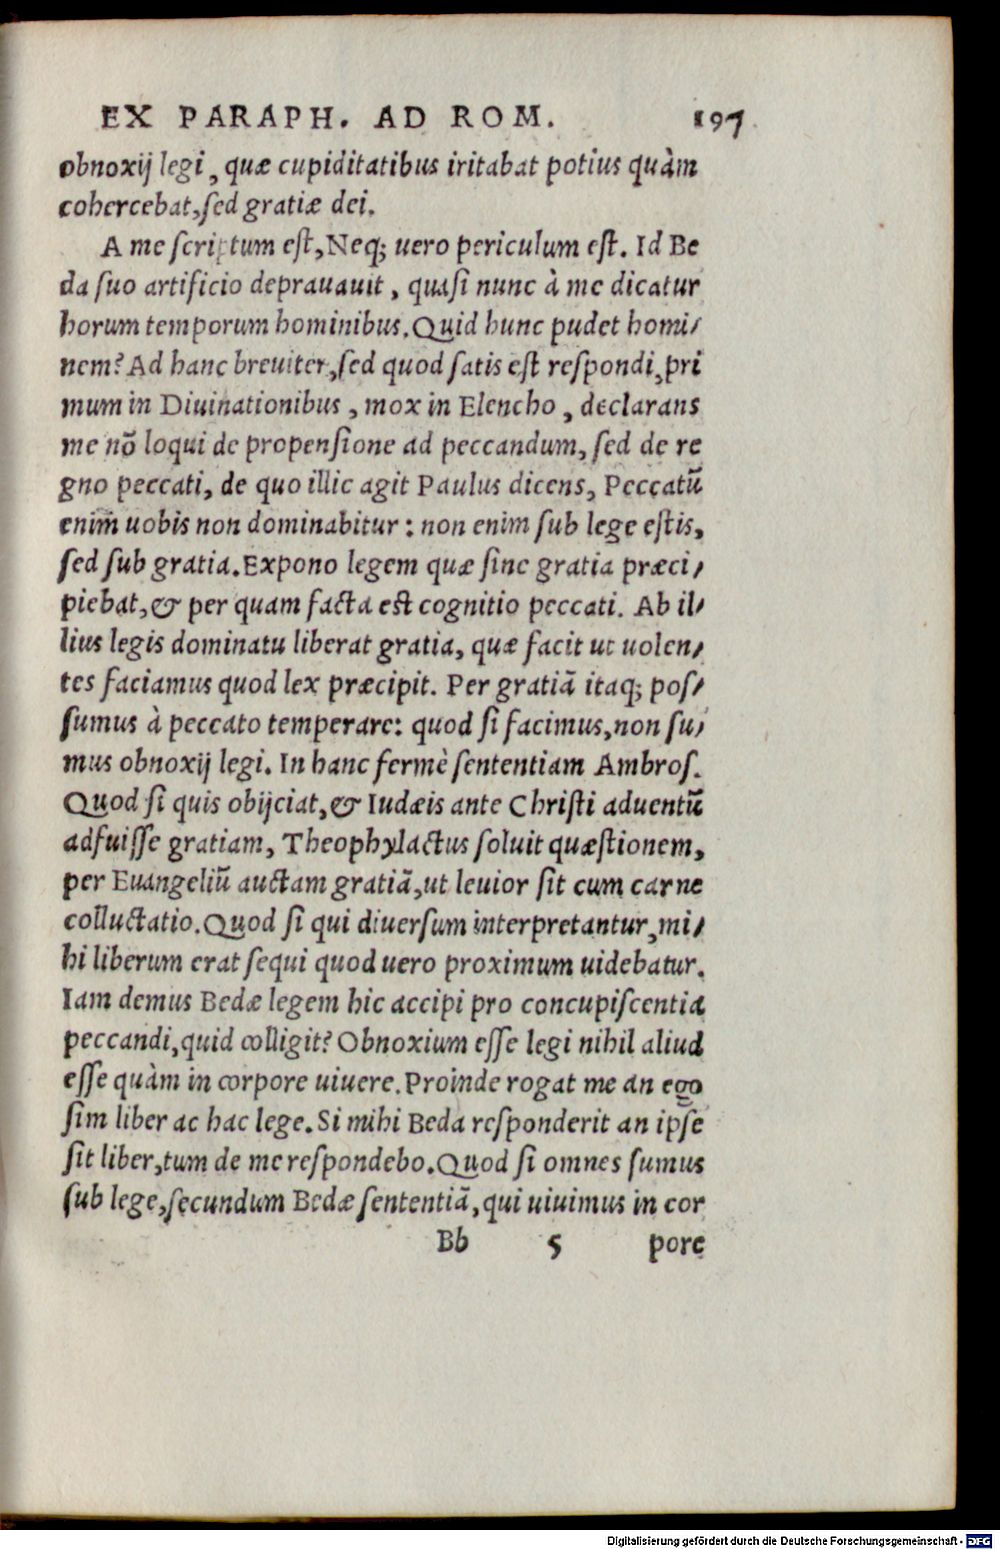 EX PARAPH. AD ROM. 197
obnoxij legi, quæ cupiditatibus iritabat potius quàm
cohercebat, sed gratiæ dei.
A me scriptum est, Neq; uero periculum est. Id Be
da suo artificio deprauauit, quasi nunc à me dicatur
horum temporum hominibus. Quid hunc pudet homi/
nem? Ad hanc breuiter, sed quod satis est respondi, pri
mum in Diuinationibus, mox in Elencho, declarans
me nõ loqui de propensione ad peccandum, sed de re
gno peccati, de quo illic agit Paulus dicens, Peccatũ
enim uobis non dominabitur: non enim sub lege estis,
sed sub gratia. Expono legem quæ sine gratia præci/
piebat, & per quam facta est cognitio peccati. Ab il/
lius legis dominatu liberat gratia, quæ facit ut uolen/
tes faciamus quod lex præcipit. Per gratiã itaq; pos/
sumus à peccato temperare: quod si facimus, non su/
mus obnoxij legi. In hanc fermè sententiam Ambros.
Quod si quis obijciat, & Iudæis ante Christi aduentũ
adfuisse gratiam, Theophylactus soluit quæstionem,
per Euangeliũ auctam gratiã, ut leuior sit cum carne
colluctatio. Quod si qui diuersum interpretantur, mi/
hi liberum erat sequi quod uero proximum uidebatur.
Iam demus Bedæ legem hic accipi pro concupiscentia
peccandi, quid colligit? Obnoxium esse legi nihil aliud
esse quàm in corpore uiuere. Proinde rogat me an ego
sim liber ac hac lege. Si mihi Beda responderit an ipse
sit liber, tum de me respondebo. Quod si omnes sumus
sub lege, secundum Bedæ sententiã, qui uiuimus in cor
Bb 5 pore
Digitalisierung gefördert durch die Deutsche Forschungsgemeinschaft - DFG